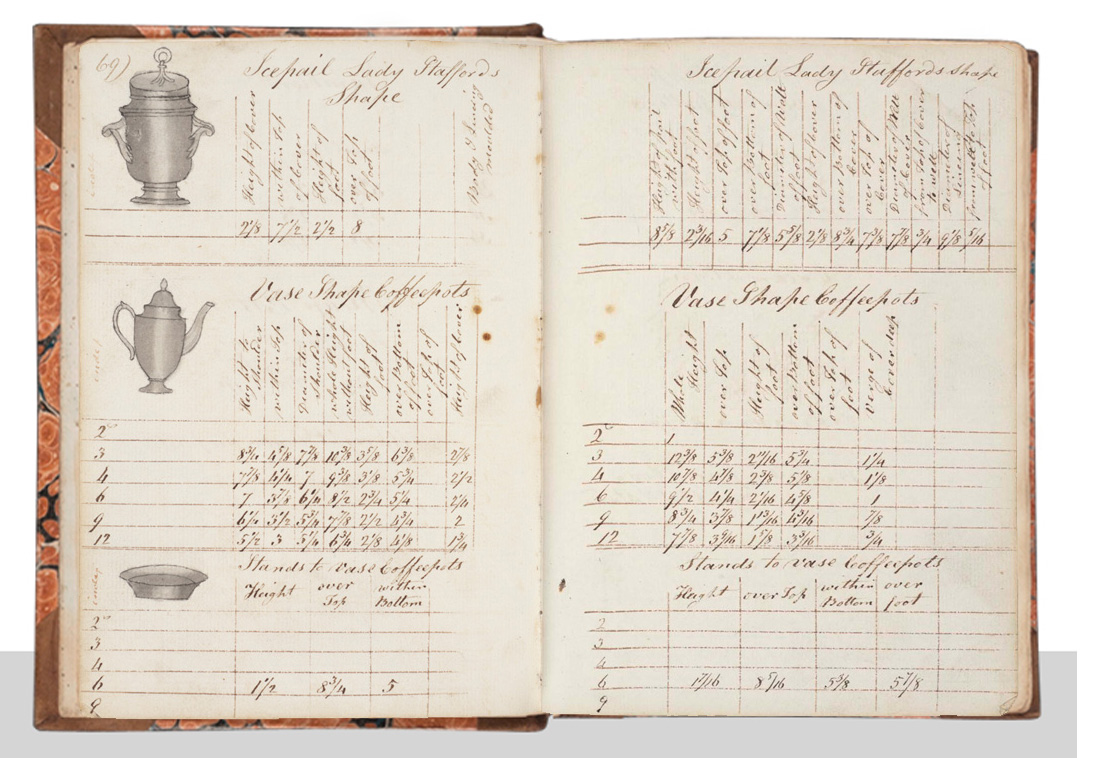 69)
Icepail Lady Staffords
Shape
Height of Cover
within Top
of Cover
Height of
foot
over Top
of foot
Body & Lineing
moulded
2 1/8 7 1/2 2 1/2 8
Vase Shape Coffeepots
Height to
Shoulder
within Top
Diameter of
Shoulder
whole Height
without foot
Height of
foot
over Bottom
of foot
over Top of
foot
Height of Cover
2
3 8 3/4 4 5/8 7 7/8 10 3/8 3 5/8 6 3/8 2 7/8
4 7 7/8 4 1/4 7 9 3/8 3 1/8 5 3/4 2 1/2
6 7 3 7/8 6 1/4 8 1/2 2 3/4 5 1/4 2 1/4
9 6 1/4 3 1/2 5 3/4 7 7/8 2 1/2 4 3/4 2
12 5 1/2 3 5 1/4 6 3/4 2 1/8 4 1/8 1 3/4
Stands to vase Coffeepots
Height over
Top within
Bottom
2
3
4
6 1 1/2 8 3/4 5
9
Icepail Lady Staffords shape
Height of pail
without foot
Height of foot
over Top of foot
over Bottom of
foot
Diameter of Well
of foot
Height of cover
over Bottom of
Cover
over Top of
Cover
Diameter of Well
of Cover
from Top of Cover
to well
Diameter of
Lineing
from well to Top
of foot
8 5/8 2 3/16 5 7 1/8 5 5/8 2 1/8 8 3/4 7 3/8 7/8 3/4 9 1/8 5/16
Vase Shape Coffeepots
Whole
Height
over Top
Height of
foot
over Bottom
of foot
over Top of
foot
verge of
Cover
2 1
3 12 3/8 5 3/8 2 11/16 5 3/4 1 1/4
4 10 7/8 4 7/8 2 3/8 5 1/8 1 1/8
6 9 1/2 4 1/4 2 1/16 4 5/8 1
9 8 3/4 3 7/8 1 13/16 4 3/16 7/8
12 7 7/8 3 9/16 1 5/8 3 9/16 3/4
Stands to vase Coffeepots
Height over Top within
Bottom over
foot
2
3
4
6 1 7/16 8 5/16 5 3/8 5 7/8
9